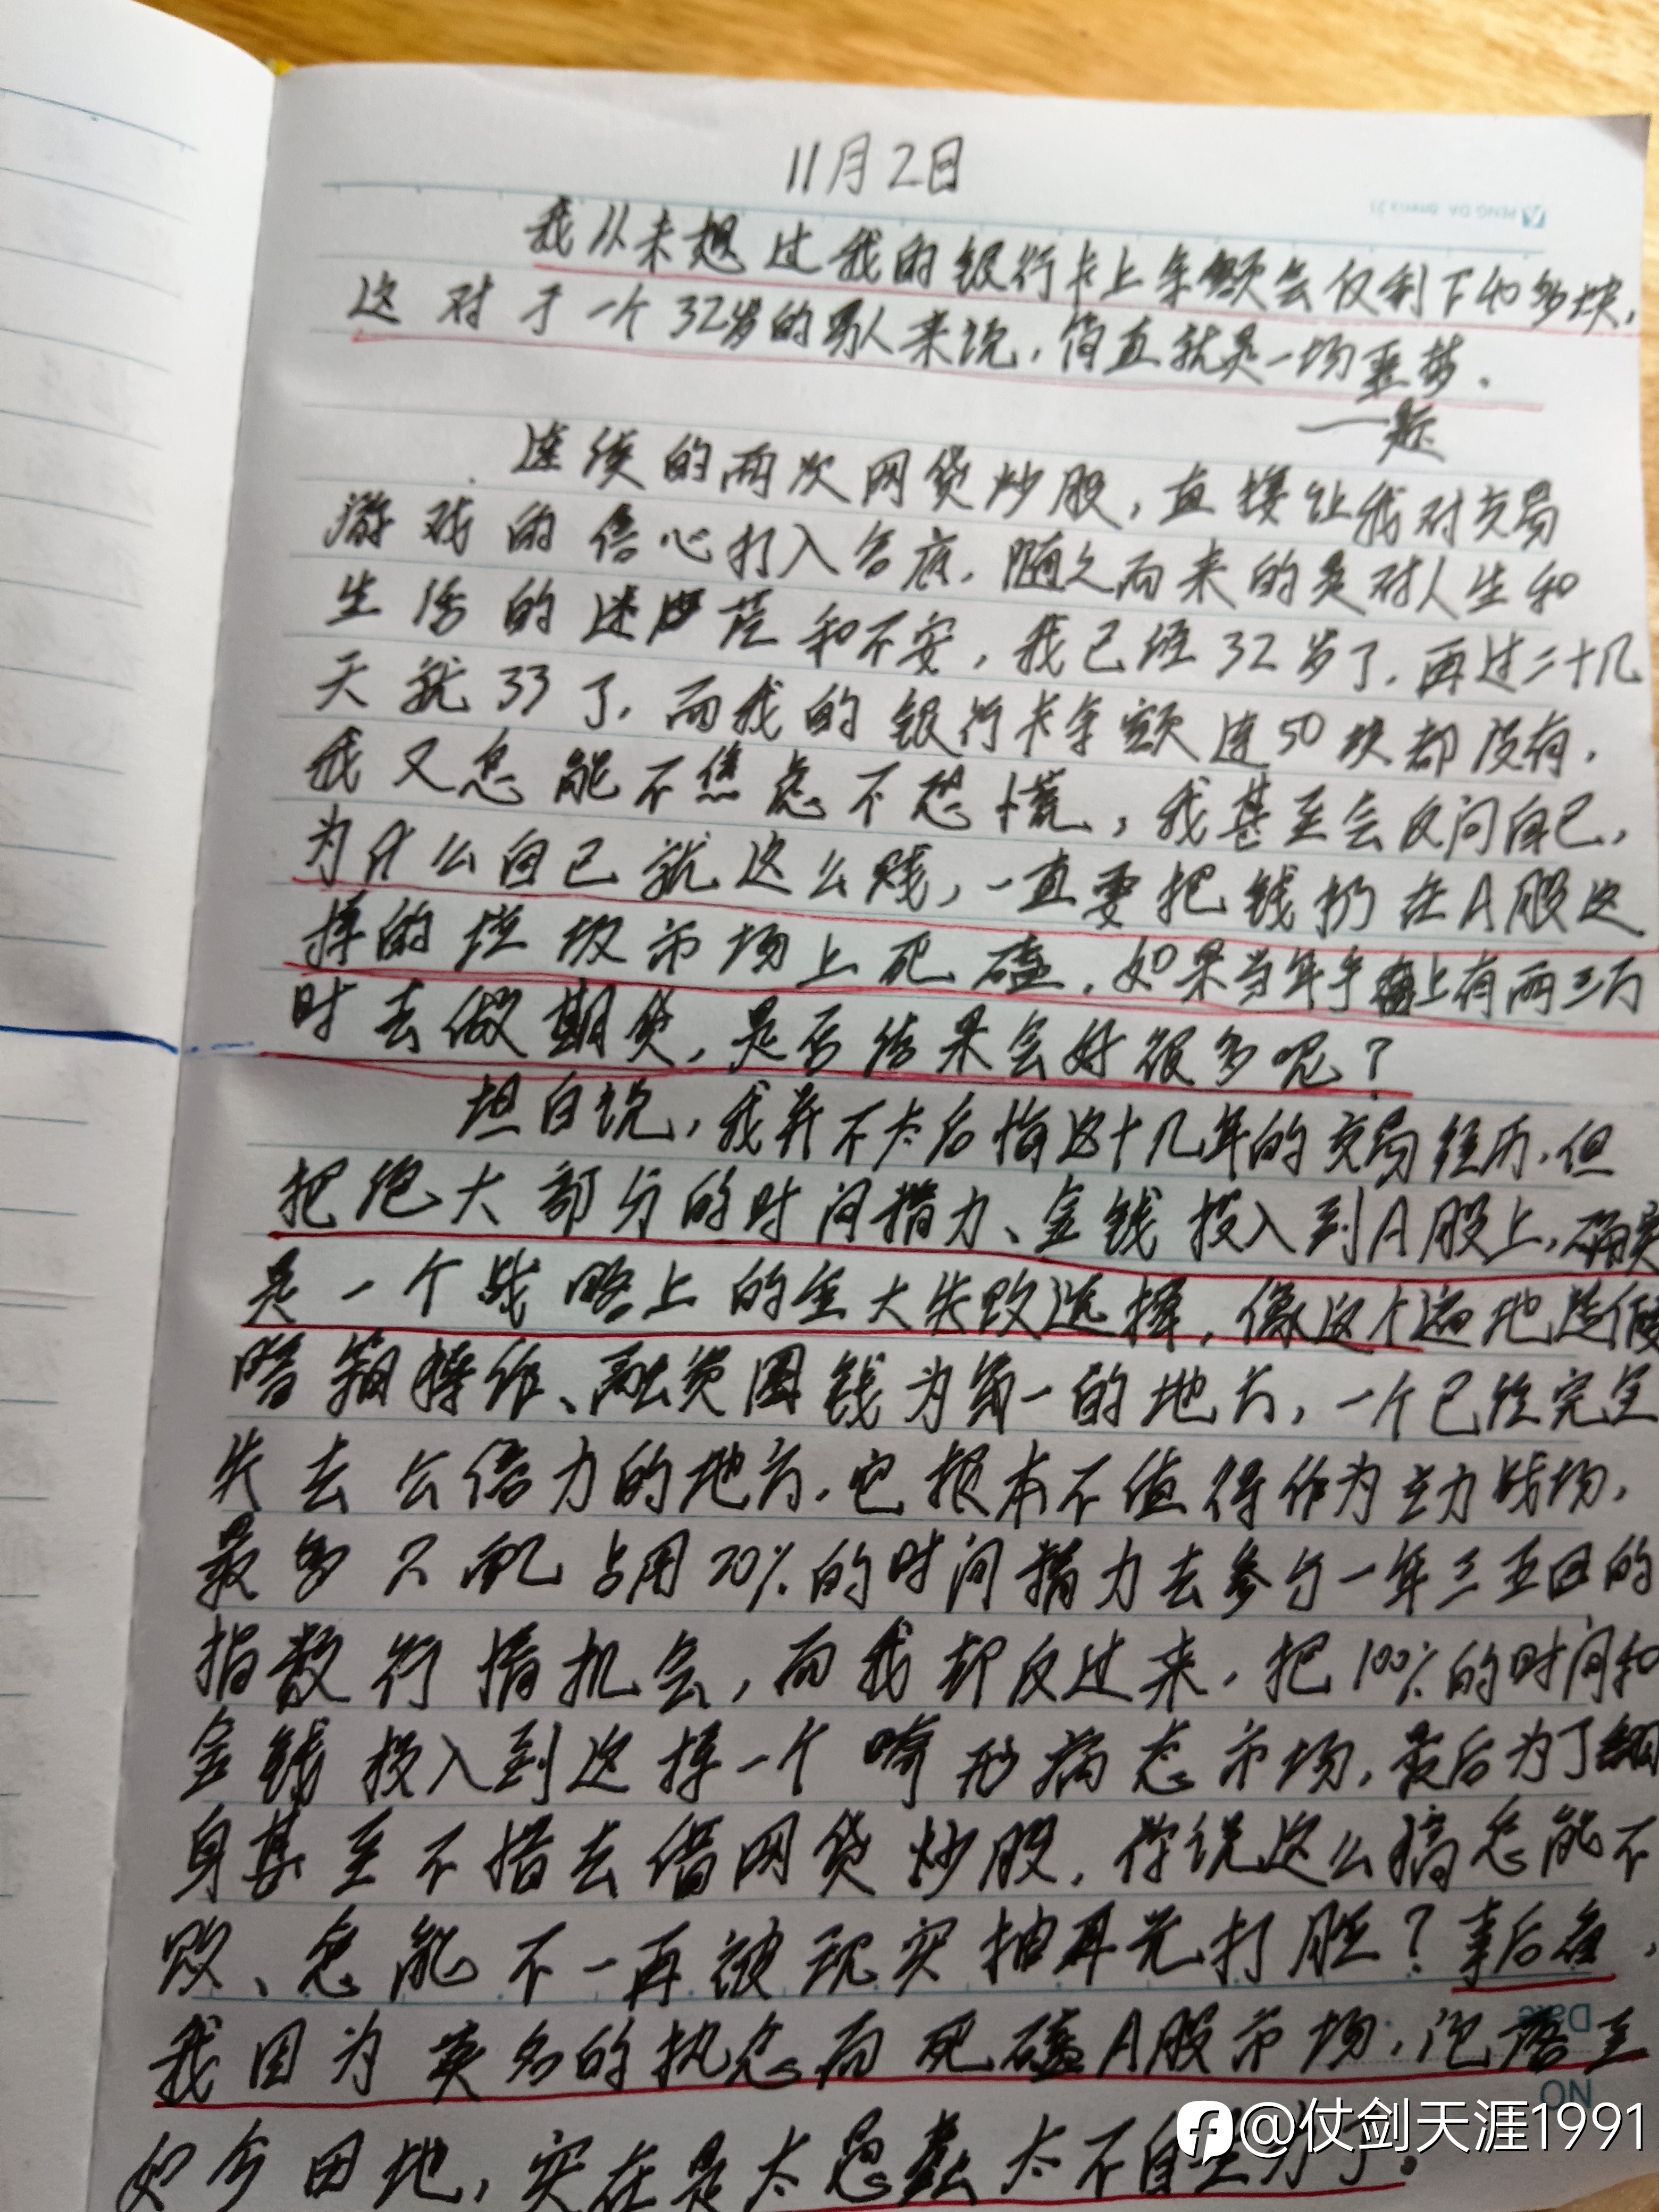 11月2日
我从未想过我的银行卡上余额会仅剩下40多块,
这对于一个32岁的男人来说,简直就是一场噩梦.
——题
连续的两次网贷炒股,直接让我对交易
游戏的信心打入谷底,随之而来的是对人生和
生活的迷茫和不安,我已经32岁了,再过二十几
天就33了,而我的银行卡余额连50块都没有,
我又怎能不焦虑不恐慌,我甚至会反问自己,
为什么自己就这么贱,一直要把钱扔在A股这
样的垃圾市场上死磕,如果当年手上有两三万
时去做期货,是否结果会好很多呢?
坦白说,我并不太后悔这十几年的交易经历,但
把绝大部分的时间精力、金钱投入到A股上,确实
是一个战略上的重大失败选择,像这个遍地造假
暗箱操作、融资圈钱为第一的地方,一个已经完全
失去公信力的地方,它根本不值得作为主力战场,
最多只配占用20%的时间精力去参与一年三五回的
指数行情机会,而我却反过来,把100%的时间和
金钱投入到这样一个畸形病态市场,最后为了翻
身甚至不惜去借网贷炒股,你说这么搞怎能不
败、怎能不一再被现实抽耳光打脸?事后看,
我因为莫名的执念而死磕A股市场,沦落至
如今田地,实在是太愚蠢太不自量力了。
DATE
NO
@仗剑天涯1991